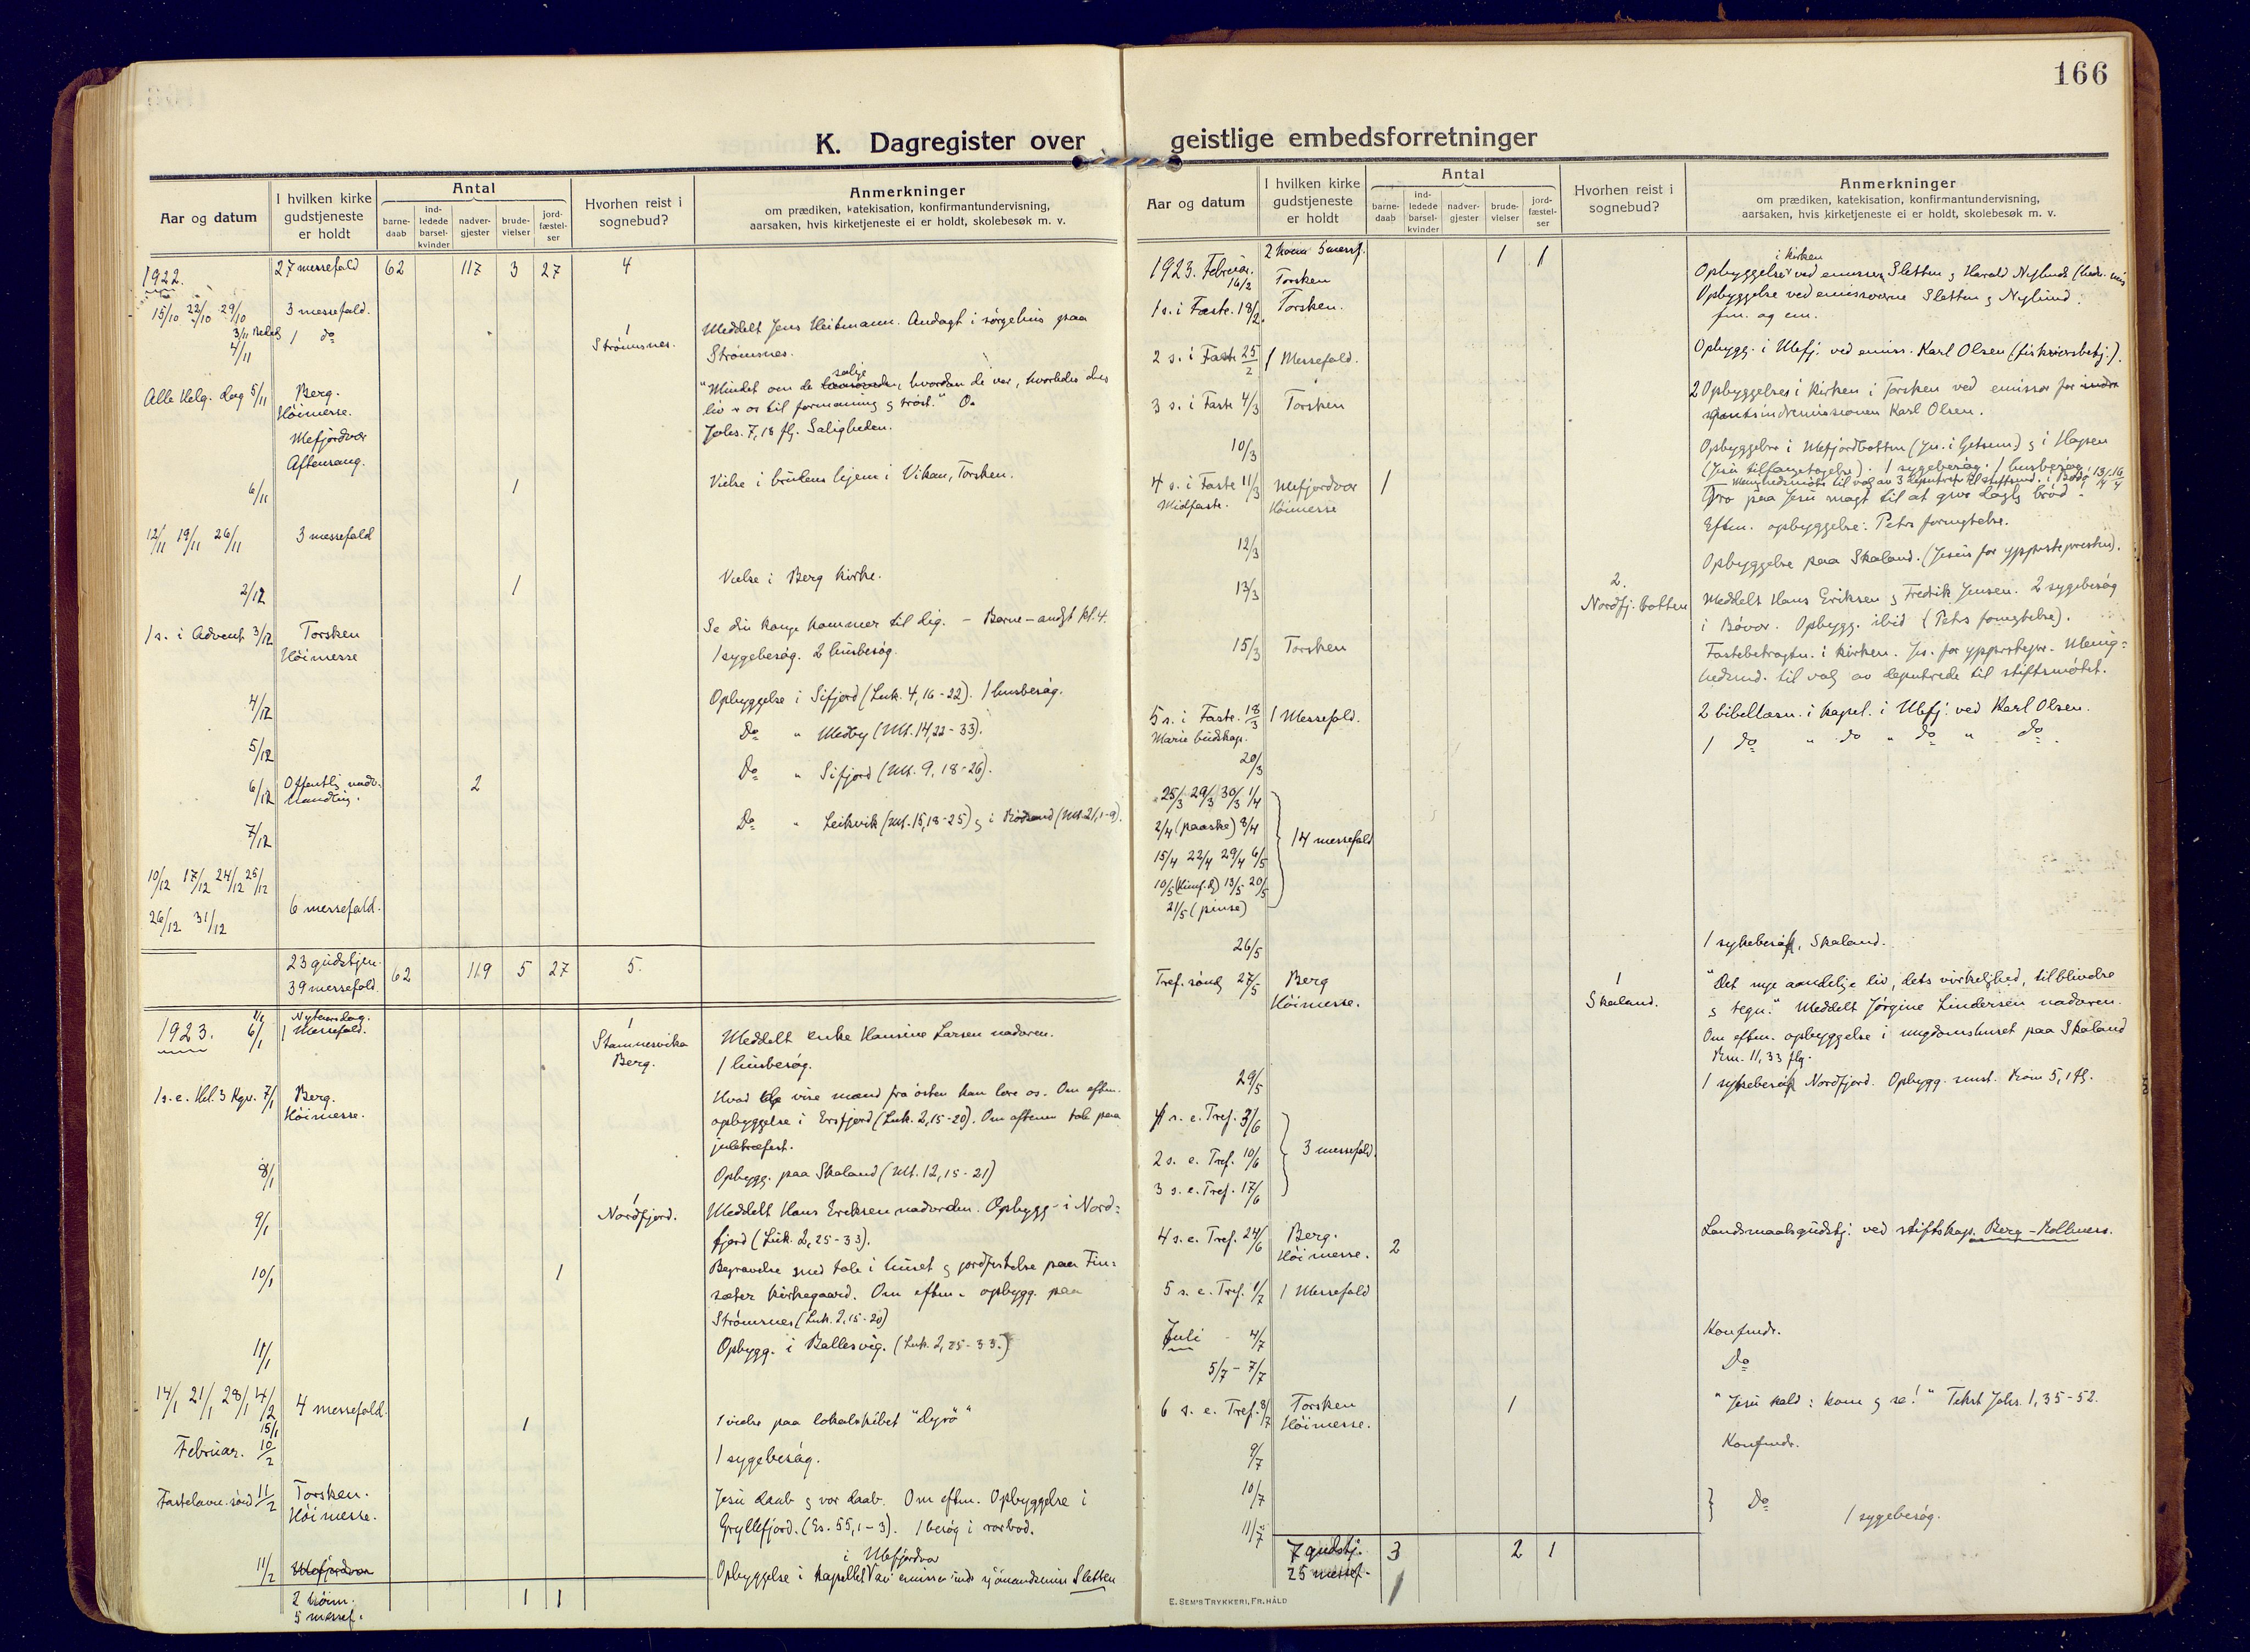 166
K. Dagregister over geistlige embedsforretninger
Aar og datum
I hvilken kirke gudstjeneste er holdt
Antal
barne-daab
ind-ledede barsel-kvinder
nadver-gjester
brude-vielser
jord-fæstel-ser
Hvorhen reist i sognebud?
Anmerkninger
om prædiken, katekisation, konfirmantundervisning,
aarsaken, hvis kirketjeneste ei er holdt, skolebesøk m. v.
1922. 27 messefald 62 117 3 27 4
15/10 22/10 29/10 3 messefald.
3/11
4/11 1 do 1 Meddelt Jens Heitmann. Andagt i sørgehus paa
Strømsnes. Strømsnes.
Alle Helg. dag 5/11 Berg. "Mindet om de salige, hvordan de var, hvorledes deres
Höimesse. liv er os til formaning og trøst." O.
Mefjordvær Johs. 7,18 flg. Saligheden.
Aftensang.
6/11 1 Vielse i brudens hjem i Vikan, Torsken.
12/11 19/11 26/11 3 messefald
2/12 1 Vielse i Berg kirke.
1 s. i Advent 3/12 Torsken Se din konge kommer til dig. - Barne-andagt kl. 4.
Höimesse 1 sygebesøg. 2 husbesøg.
4/12 Opbyggelse i Sifjord (Luk. 4,16-22). 1 husbesøg.
5/12 Do " Medby (Mt. 14,22-33).
6/12 Offentlig nadv. handling. 2 Do " Sifjord (Mt. 9,18-26).
7/12 Do " Leikvik (Mt. 15,18-25) og i Rödsand (Mt. 21,1-9).
10/12 17/12 24/12 25/12
26/12 31/12 6 messefald.
23 gudstjen. 62 119 5 27 5.
39 messefald.
1923. 1/1 Nytaarsdag.
6/1 1 Messefald. 1 Stamnesvika Berg. Meddelt enke Hansine Larsen nadveren.
1 husbesøg.
1 s. e. Hel. 3 Kgr. 7/1 Berg. Hvad de vise mænd fra østen kan lære os. Om eftm.
Höimesse. opbyggelse i Ersfjord (Luk. 2,15-20). Om aftenen tale paa
juletræfest.
8/1 Opbygg. paa Skaland (Mt. 12,15-21)
9/1 1 Nordfjord. Meddelt Hans Eriksen nadverden. Opbygg. i Nord-
fjord (Luk. 2,25-33).
10/1 1 Begravelse med tale i huset og jordfæstelse paa Fin-
sæter kirkegaard. Om eftm. opbygg. paa
Strömsnes (Luk. 2,15-20)
11/1 Opbygg. i Ballesvig. (Luk. 2,25-33.)
14/1 21/1 28/1 4/2 4 messefald.
15/1 1 1 vielse paa lokalskibet "Dyrö"
Februar. 10/2 1 sygebesøg.
Fastelavns sönd 11/2 Torsken. Jesu daab og vor daab. Om eftm. Opbyggelse i
Höimesse. Gryllefjord. (Es. 55,1-3). 1 besøg i rorbod.
11/2 Mefjordvær Opbyggelse i kapellet i Mefjordvær av emissær Sletten
2 höim. 1 1
5 messef.
Aar og datum
I hvilken kirke gudstjeneste er holdt
Antal
barne-daab
ind-ledede barsel-kvinder
nadver-gjester
brude-vielser
jord-fæstel-ser
Hvorhen reist i sognebud?
Anmerkninger
om prædiken, katekisation, konfirmantundervisning,
aarsaken, hvis kirketjeneste ei er holdt, skolebesøk m. v.
2 höim 5 messf. 1 1
1923. Februar. 16/2 Torsken Opbyggelse i kirken ved emissær Sletten og Harald Nylund
1 s. i Faste. 18/2. Torsken. Opbyggelse ved emissærerne Sletten og Nylund.
fm. og em.
2 s. i Faste 25/2 1 Messefald. Opbygg. i Mefj. ved emiss. Karl Olsen (fiskværsbetj.).
3 s. i Faste 4/3 Torsken 2 Opbyggelser i kirken i Torsken ved emissær for indre
indremissionen Karl Olsen.
10/3 Opbyggelse i Mefjordbotten (Jes. i Getsem.) og i Hopen
(Jesu tilfangetagelse). 1 sygebesøg. 1 husbesøg.
Menighedsmøte til valg av 3 deputerte til stiftsmøt. i Bodø 13/4-16/4
4 s. i Faste 11/3 Mefjordvær 1 Tro paa Jesu magt til at give daglig brød.
Midfaste. Höimesse Eftm. opbyggelse: Peters fornegtelse.
12/3 Opbyggelse paa Skaland. (Jesus for ypperstepresten).
13/3 2. Nordfj. botten Meddelt Hans Eriksen og Fredrik Jensen. 2 sygebesøg
i Bövær. Opbygg. ibid (Peters fornegtelse).
15/3 Torsken Fastebetragtn. i kirken. Jes. for ypperstepr. Menig-
hedsmd. til valg av deputerede til stiftsmøtet.
5 s. i Faste. 18/3 1 Messefald. 2 bibellæsn. i kapel. i Mefj. ved Karl Olsen.
Marie budskap.
20/3 1 do " do " do " do.
25/3 29/3 30/3 1/4
2/4 (paaske) 8/4 14 messefald
15/4 22/4 29/4 6/5
10/5 (Himf. d.) 13/5 20/5
21/5 (pinse)
26/5 1 sykebesøk, Skaland.
Tref. sönd 27/5 Berg 1 Skaland. "Det nye aandelige liv, dets virkelighed, tilblivelse
Höimesse. og tegn." Meddelt Jörgine Lindersen nadveren.
Om eftm. opbyggelse i ungdomshuset paa Skaland
Rm. 11,33 flg.
29/5 1 sykebesøk Nordfjord. Opbygg. smst. Rom 5,1 flg.
1 s. e. Tref. 3/6
2 s. e. Tref. 10/6 3 messefald.
3 s. e. Tref. 17/6
4 s. e. Tref. 24/6 Berg. Höimesse. 2 Landsmaalsgudstj. ved stiftskap. Berg-Kollmers.
5 s. e. Tref. 1/7 1 Messefald
Juli 4/7 Konfmdr.
5/7 - 7/7 Do
6 s. e. Tref. 8/7 Torsken Höimesse. 1 "Jesu kald: kom og se!" Tekst Johs. 1,35-52.
9/7 Konfmdr.
10/7 Do
11/7 1 sygebesøg.
7 gudstj. 3 2 1
25 messef. 1
E. SEM'S TRYKKERI, FR.HALD